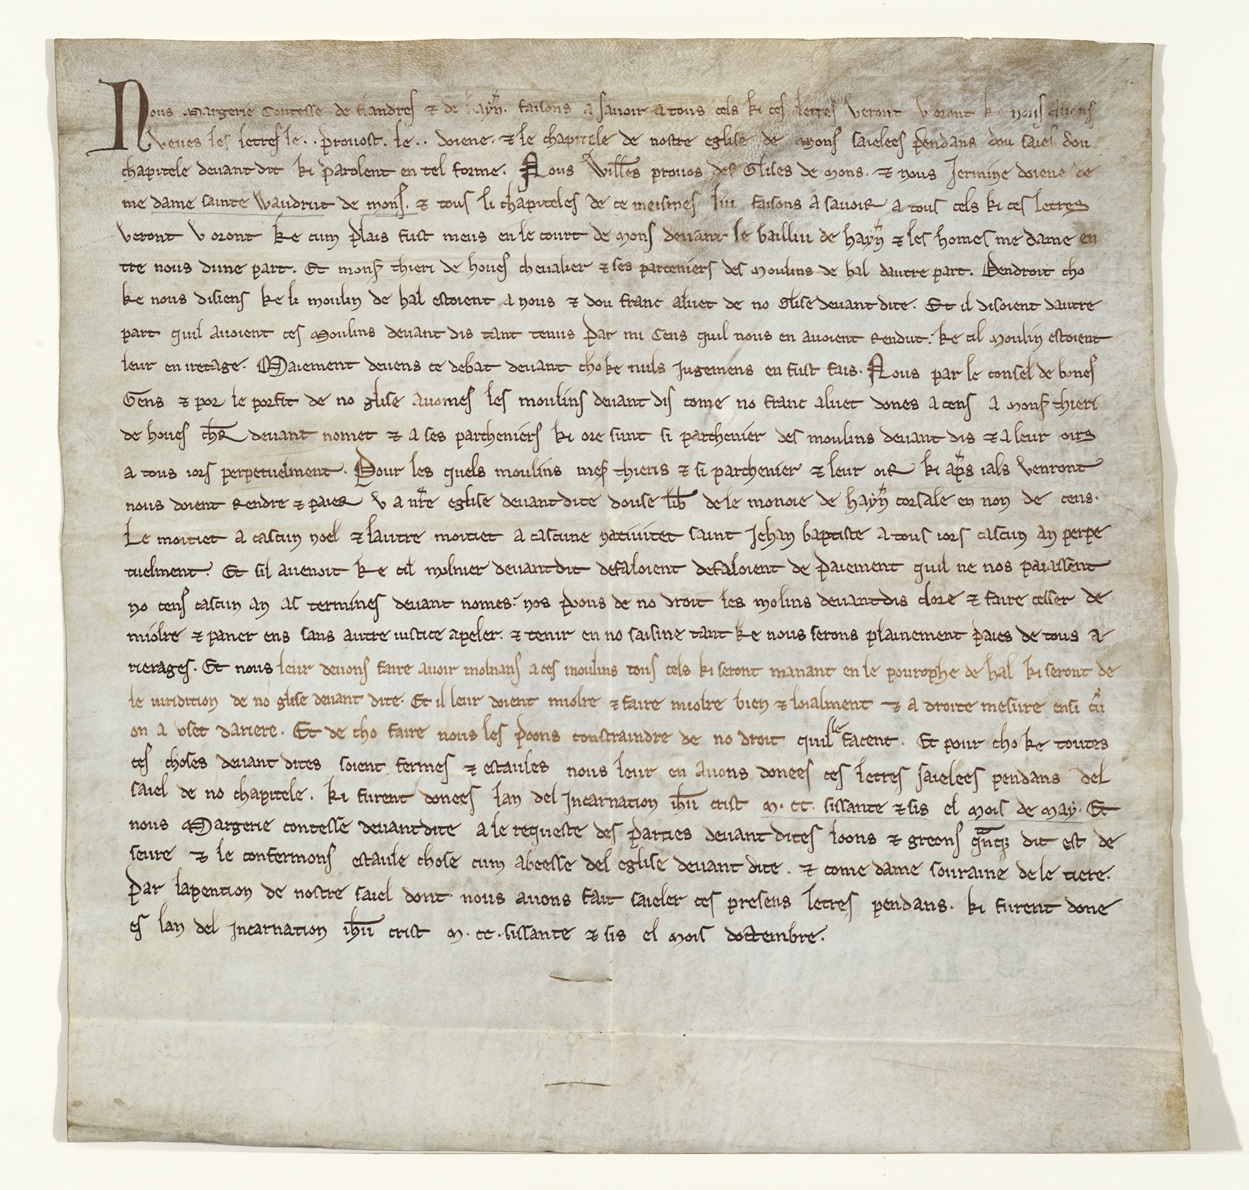 Nous Margerie Contesse de flandres ⁊ de hayn̄. faisons a savoir a tous cels ki ces lettres veront v oront ke nous avons
veues les lettres le.. provost. le.. doiene. ⁊ le chapitele de nostre eglise de mons saielees pendans dou saiel dou
chapitele devant dit ki parolent en tel forme. Nous Will̄es provos des Glises de mons. ⁊ nous Jermine doiene de
me dame sainte Waudrut de mons. ⁊ tous li chapiteles de ce meismes liu faisons a savoir a tous cels ki ces letres
veront v oront ke cum plais fust meus en le court de mons devant le bailliu de hayn̄ ⁊ les homes me dame en
tre nous dune part. Et mons̄ thieri de houes chevalier ⁊ ses parceniers des Moulins de hal dautre part. Dendroit cho
ke nous disiens ke li moulin de hal estoient a nous ⁊ dou franc aluet de no glise devant dite. Et il disoient dautre
part quil avoient ces Moulins devant dis tant tenus par mi Cens quil nous en avoient rendut. ke cil moulin estoient
leur en iretage. Maiement devens ce debat devant cho ke nuls Jugemens en fust fais. Nous par le consel de bones
Gens ⁊ por le porfit de no glise avomes les moulins devant dis come no franc aluet dones a cens a mons̄ thieri
de houes chr̄ devant nomet ⁊ a ses parcheniers ki ore sunt si parchenier des moulins devant dis ⁊ a leur oirs
a tous iors perpetuelment. Pour les quels moulins mes̄ thieris ⁊ si parchenier ⁊ leur oir ki ap̄s ials venront
nous doient rendre ⁊ paier v a nr̄e eglise devant dite douse lib̄ de le monoie de hayn̄ corsale en non de cens.
Le moitiet a cascun noel ⁊ lautre moitiet a cascune nativitet saint Jehan baptiste a tous iors cascun an perpe
tuelment. Et sil avenoit ke cil molnier devant dit defaloient defaloient de paiement quil ne nos paiassent
no cens cascun an as termines devant nomes. nos poons de no droit les molins devant dis clore ⁊ faire cesser de
miolre ⁊ paner ens sans autre iustice apeler. ⁊ tenir en no saisine tant ke nous serons plainement paies de tous a
rierages. Et nous leur devons faire avoir molnans a ces moulins tous cels ki seront manant en le pourophe de hal ki seront de
le iuridition de no glise devant dite. Et il leur doient miolre ⁊ faire miolre bien ⁊ loialment ⁊ a droite mesure ensi cū
on a uset dariere. Et de cho faire nous les poons constraindre de no droit quil le facent. Et pour cho ke toutes
ces choses devant dites soient fermes ⁊ estaules nous leur en avons donees ces letres saielees pendans del
saiel de no chapitele. ki furent donees lan del Incarnation ihū crist M. cc. sissante ⁊ sis el mois de May. Et
nous Margerie contesse devant dite a le requeste des parties devant dites loons ⁊ greons qn̄cq̄ dit est de
seure ⁊ le confermons estaule chose cum abeesse del eglise devant dite. ⁊ come dame souraine de le tiere.
par lapention de nostre saiel dont nous avons fait saieler ces presens letres pendans. ki furent done
es lan del Incarnation ihū crist M. cc. sissante ⁊ sis el mois doctembre.